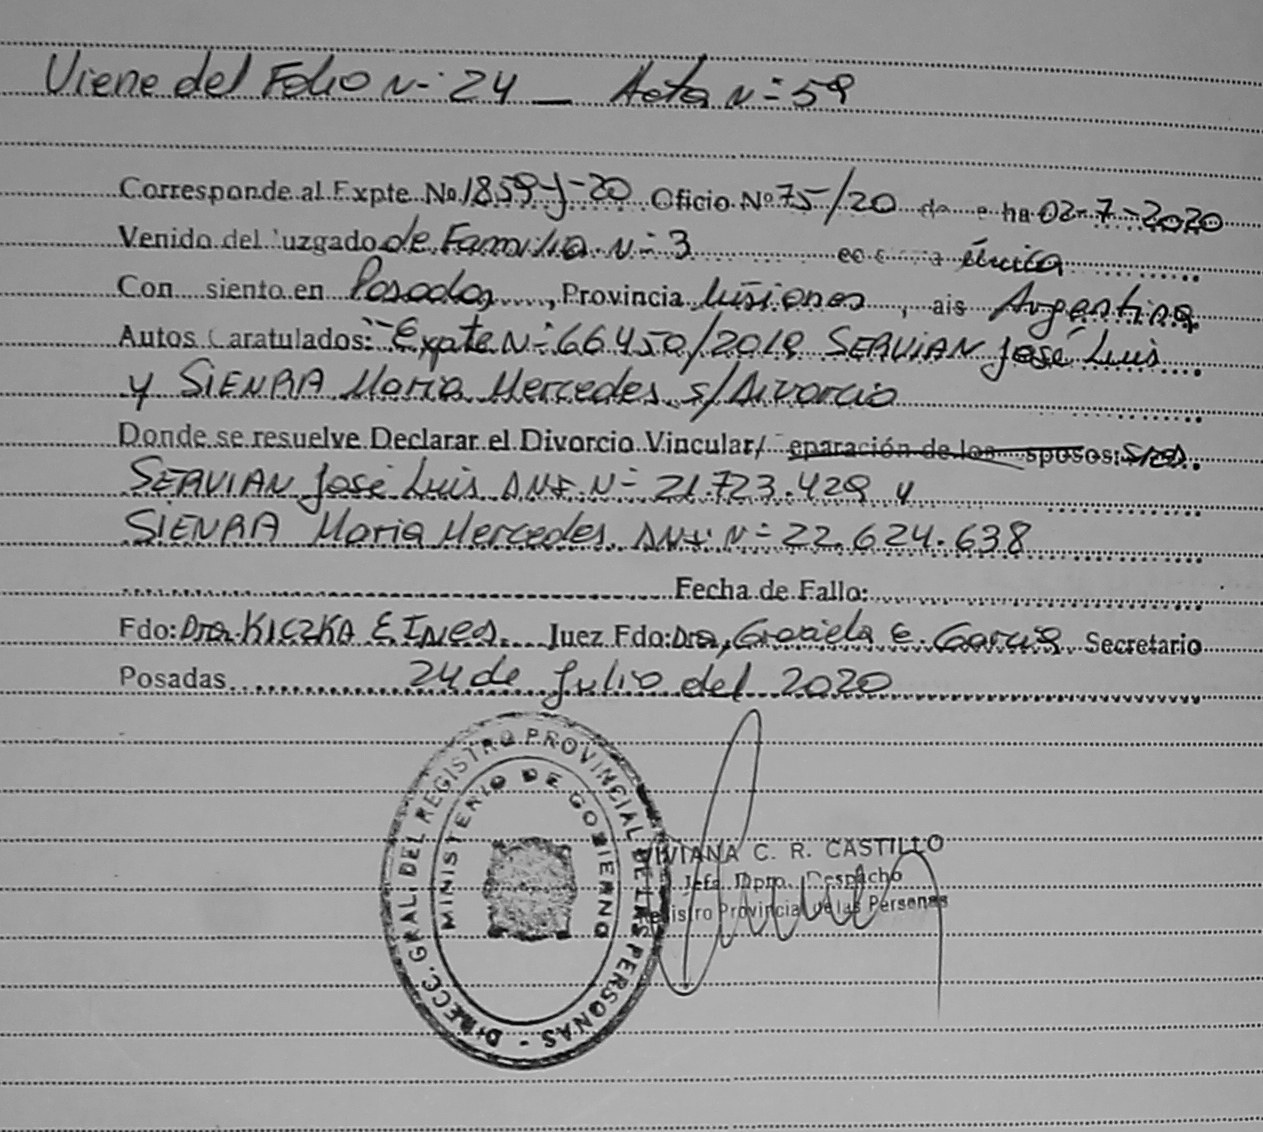 Viene del Folio N- 24 — Acta N=59
Corresponde al Expte Nº 1859-J-20 Oficio Nº 75/20 de e ha 02-7-2020
Venido del uzgado de Familia N- 3 única
Con siento en Posadas, Provincia Misiones, ais Argentina
Autos Caratulados: Expte N- 66450/2019 SERVIAN José Luis
y SIENRA Maria Mercedes s/Divorcio
Donde se resuelve Declarar el Divorcio Vincular/ eparación de los sposos: Sres.
SERVIAN José Luis DNI. N- 21.723.429 y
SIENRA Maria Mercedes DNI. N- 22.624.638
Fecha de Fallo:
Fdo: Dra. KICZKA E Ines. Juez Fdo: Dra, Graciela E. Garcia Secretario
Posadas 24 de Julio del 2020
DIRECC. GRAL. DEL REGISTRO PROVINCIAL DE LAS PERSONAS -
MINISTERIO DE GOBIERNO
VIVIANA C. R. CASTILLO
Jefa Dpto. Despacho
Registro Provincial de las Personas